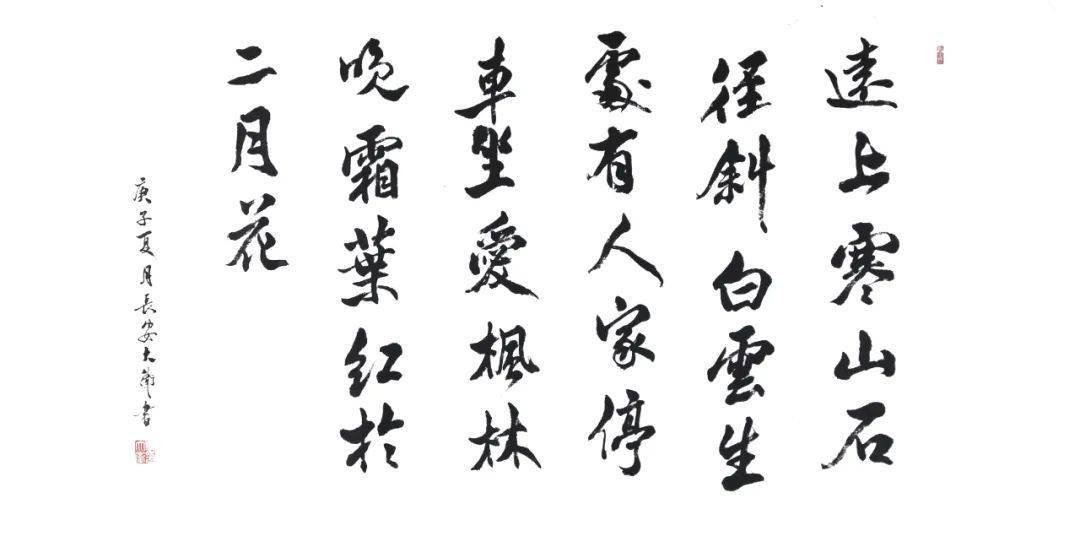 遠上寒山石
徑斜白雲生
處有人家停
車坐愛楓林
晚霜葉紅於
二月花
庚子夏月長安大 書